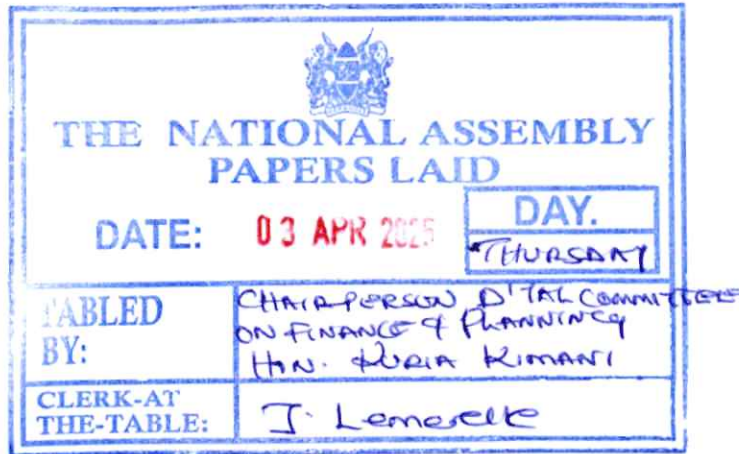 THE NATIONAL ASSEMBLY
PAPERS LAID
DATE: 03 APR 2025
DAY.
THURSDAY
TABLED BY:
CHAIRPERSON D'TAL COMMITTEE
ON FINANCE & PLANNING
HON. KURIA KIMANI
CLERK-AT
THE-TABLE:
J. Lemerelle